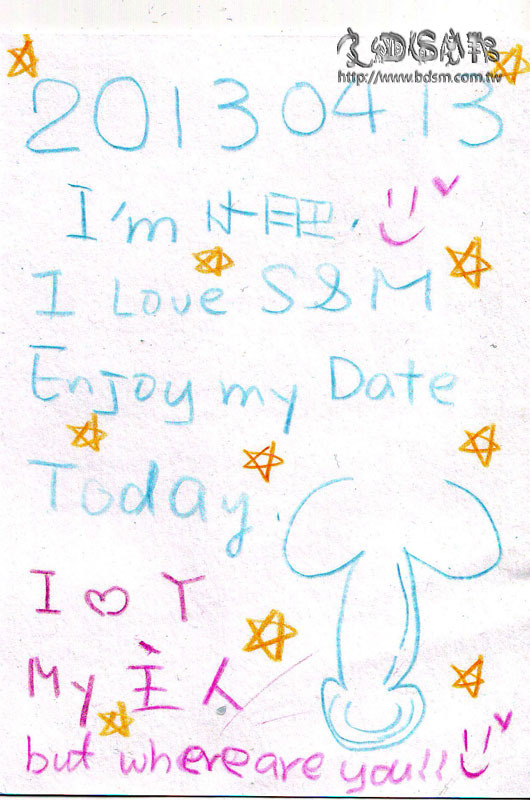 http://www.bdsm.com.tw
20130413
I'm
I Love S&M
Enjoy my Date
Today.
I ♡ Y
My 主人
but where are you!!